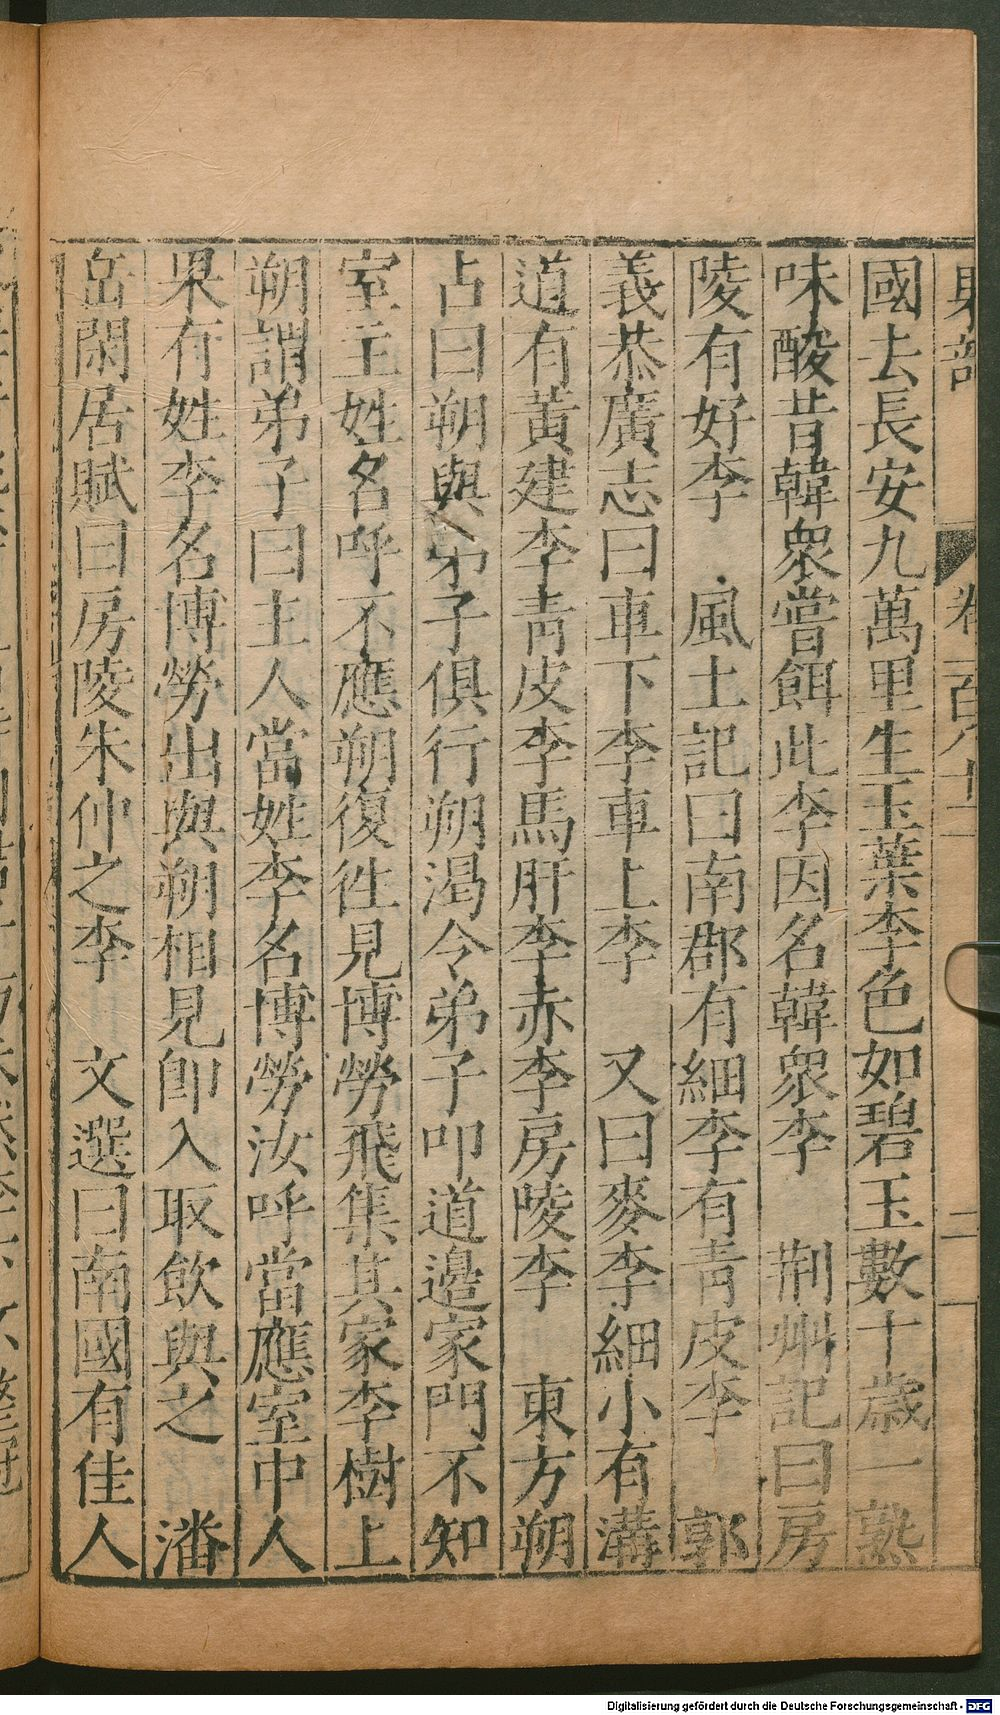 國去長安九萬里生玉葉李色如碧玉數十歲一熟
味酸昔韓衆嘗餌此李因名韓衆李 荆州記曰房
陵有好李 風土記曰南郡有細李有青皮李 郭
義恭廣志曰車下李車上李 又曰麥李細小有溝
道有黃建李青皮李馬肝李赤李房陵李 東方朔
占曰朔與弟子俱行朔渴令弟子叩道邊家門不知
室主姓名呼不應朔復徃見博勞飛集其家李樹上
朔謂弟子曰主人當姓李名博勞汝呼當應室中人
果有姓李名博勞出與朔相見卽入取飲與之 潘
岳閑居賦曰房陵朱仲之李 文選曰南國有佳人
Digitalisierung gefördert durch die Deutsche Forschungsgemeinschaft - DFG